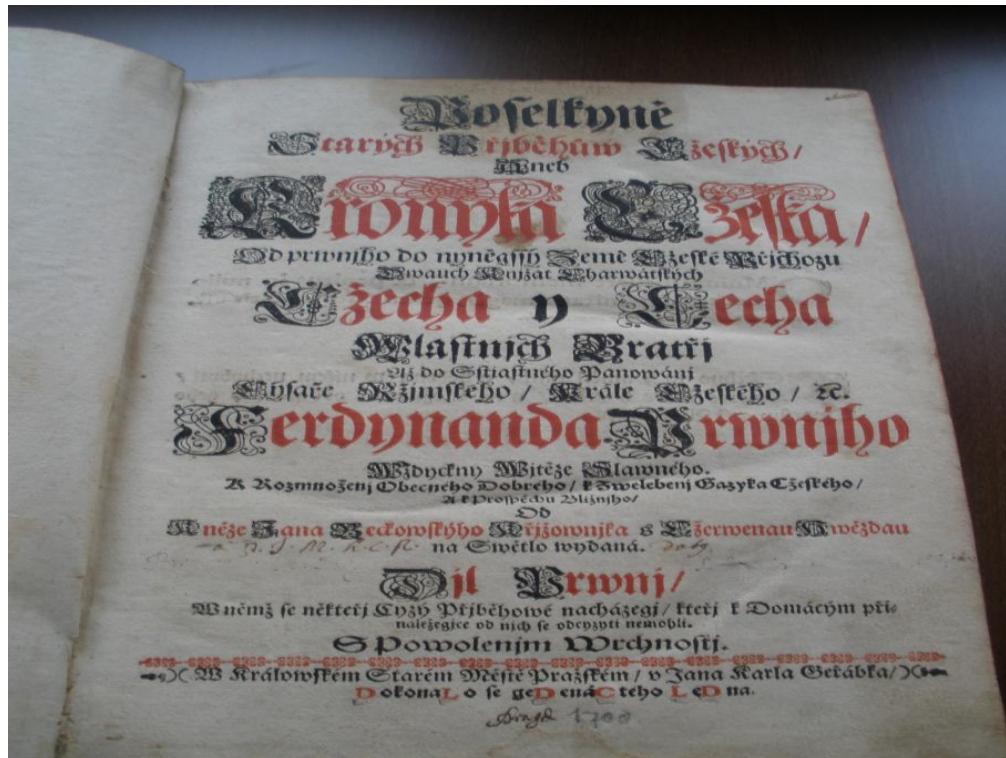 Poselkyně
Starých Přjběhůw Cžeských/
Aneb
Kronyka Cžeska/
Od prwnjho do nyněgssý Země Cžeské Přjchozu
Dwauch Knjžat Charwátských
Cžecha y Lecha
Wlastnjch Bratřj
Až do Sstiastného Panowánj
Cysaře Ržjmského / Krále Cžeského / ꝛc.
Ferdynanda Prwnjho
Wždyckny Wjtěze Slawného.
K Rozmnoženj Obecného Dobrého / k Zwelebenj Gazyka Cžeského /
A k Prospěchu Bližnjho/
Od
Kněze Jana Beckowskýho Křjžownjka s Cžerwenau Hwězdau
na Swětlo wydaná.
Djl Prwnj/
W němž se někteřj Cyzý Přjběhowé nacházegj / kteřj k Domácým při-
naležegjce od nich se odcyzyti nemohli.
S Powolenjm Wrchnostj.
W Králowském Starém Městě Pražském / v Jana Karla Geřábka /
DokonaLo se geDenáCteho LeDna.
Pragæ 1700